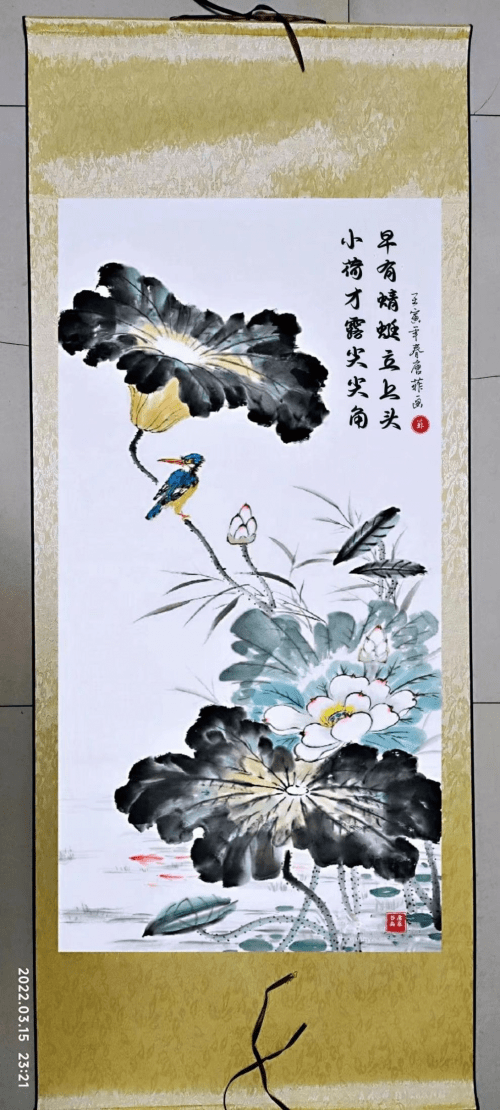 小荷才露尖尖角
早有蜻蜓立上头
壬寅年春唐菲画
2022.03.15 23:21